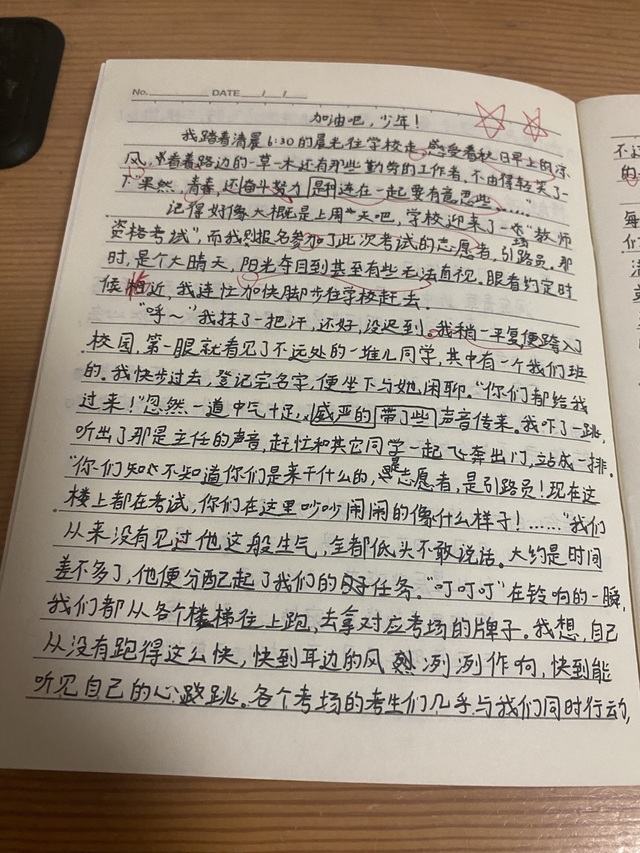 No. DATE / /
加油吧，少年！
我踏着清晨6:30的晨光往学校走,感受着秋日早上的凉
风，看着路边的一草一木还有那些勤劳的工作者，不由得轻笑了一
下"果然，青春，还奋斗努力是利连在一起要有意思些……"
记得好像大概是上周一天吧，学校迎来了一次"教师
资格考试"，而我则报名参加了此次考试的志愿者，引路员。那
时，是个大晴天，阳光夺目到甚至有些无法直视。眼看约定时
候临近，我连忙加快脚步往学校赶去。
"呼～"我抹了一把汗，还好，没迟到。我稍一平复便跨入了
校园，第一眼就看见了不远处的一堆儿同学，其中有一个我们班
的。我快步过去，登记完名字，便坐下与她闲聊。"你们都给我
过来！"忽然一道中气十足，威严的带了些声音传来。我吓了一跳，
听出了那是主任的声音，赶忙和其它同学一起飞奔出门，站成一排。
"你们知不知道你们是来干什么的，是志愿者，是引路员！现在这
楼上都在考试，你们在这里吵吵闹闹的像什么样子！……"我们
从来没有见过他这般生气，全都低头不敢说话。大约是时间
差不多了，他便分配起了我们的任务。"叮叮叮"在铃响的一瞬，
我们都从各个楼梯往上跑，去拿对应考场的牌子。我想，自己
从没有跑得这么快，快到耳边的风冽冽作响，快到能
听见自己的心跳。各个考场的考生们几乎与我们同时行动，
不
的
每
们